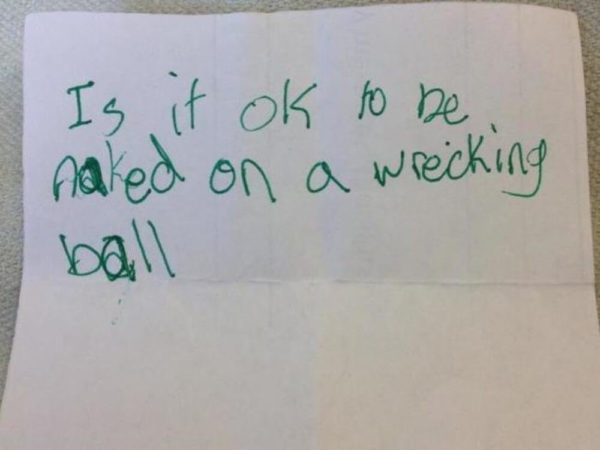 Is it ok to be
naked on a wrecking
ball